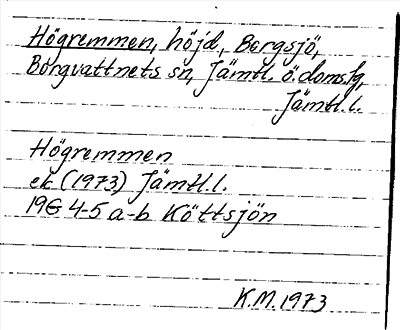 Högremmen, höjd, Bergsjö,
Borgvattnets sn, Jämtl. ö. doms.fg,
Jämtl.l.
Högremmen
ek (1973) Jämtl.l.
19G 4-5 a-b Köttsjön
K.M. 1973